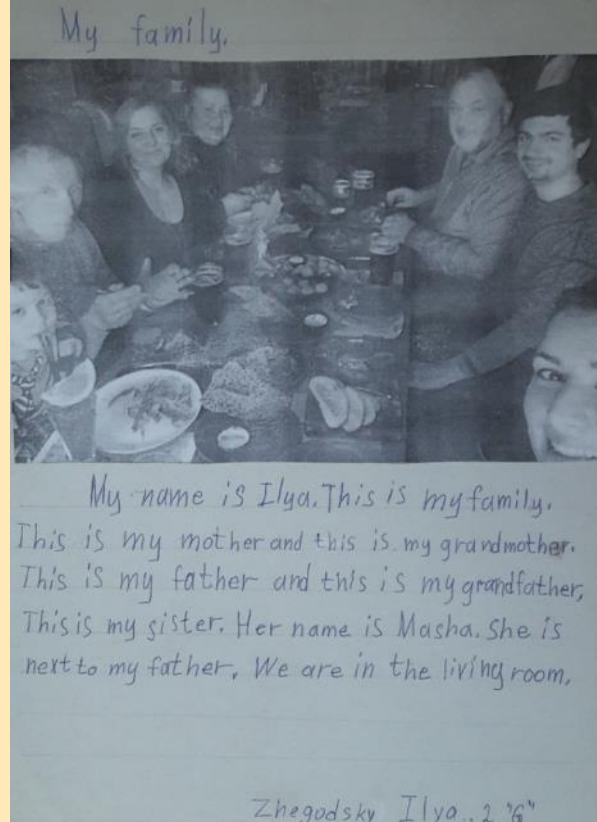 My family.
My name is Ilya. This is my family.
This is my mother and this is my grandmother.
This is my father and this is my grandfather,
This is my sister. Her name is Masha. She is
next to my father. We are in the living room.
Zhegodsky Ilya., 2 "G"